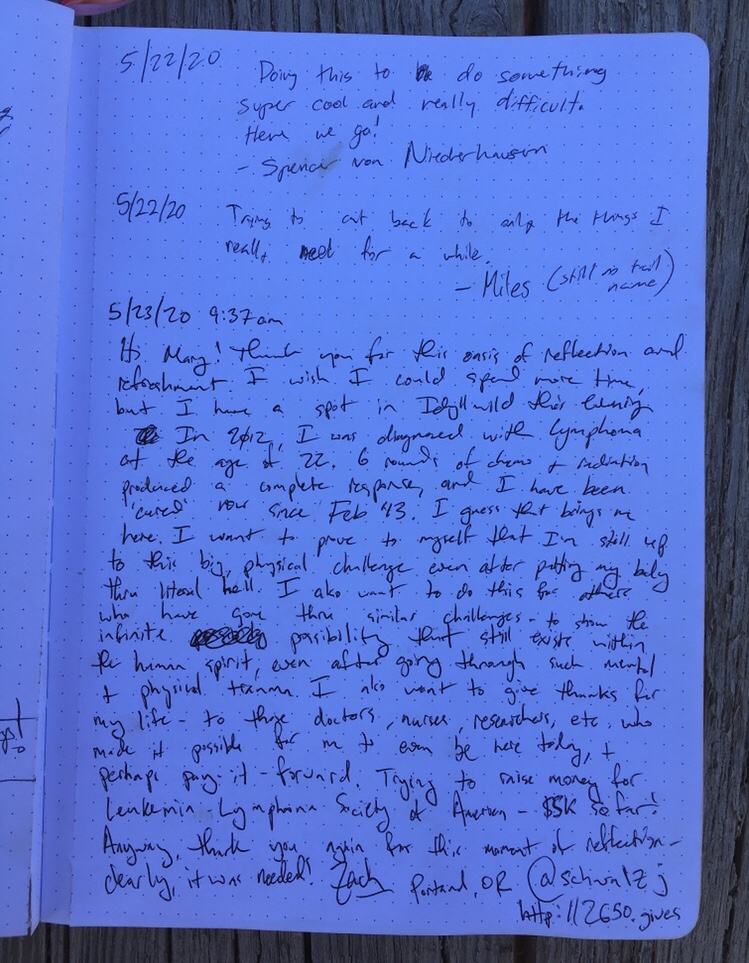 5/22/20 Doing this to do something
super cool and really difficult.
Here we go!
- Spencer von Niederhausern
5/22/20 Trying to cut back to only the things I
really need for a while.
- Miles (still no trail
name)
5/23/20 9:37am
Hi Mary! Thank you for this oasis of reflection and
refreshment I wish I could spend more time,
but I have a spot in Idyllwild this evening
In 2012, I was diagnosed with lymphoma
at the age of 22. 6 rounds of chemo + radiation
produced a complete response, and I have been
'cured' now since Feb '13. I guess that brings me
here. I want to prove to myself that I'm still up
to this big, physical challenge even after putting my body
thru literal hell. I also want to do this for others
who have gone thru similar challenges - to show the
infinite possibility that still exists within
the human spirit, even after going through such mental
+ physical trauma. I also want to give thanks for
my life - to those doctors, nurses, researchers, etc. who
made it possible for me to even be here today, +
perhaps pay-it-forward. Trying to raise money for
Leukemia-Lymphoma Society of America - $5K so far!
Anyway, thank you again for this moment of reflection -
clearly, it was needed! Zach Portland, OR @schwalzj
http://2650.gives